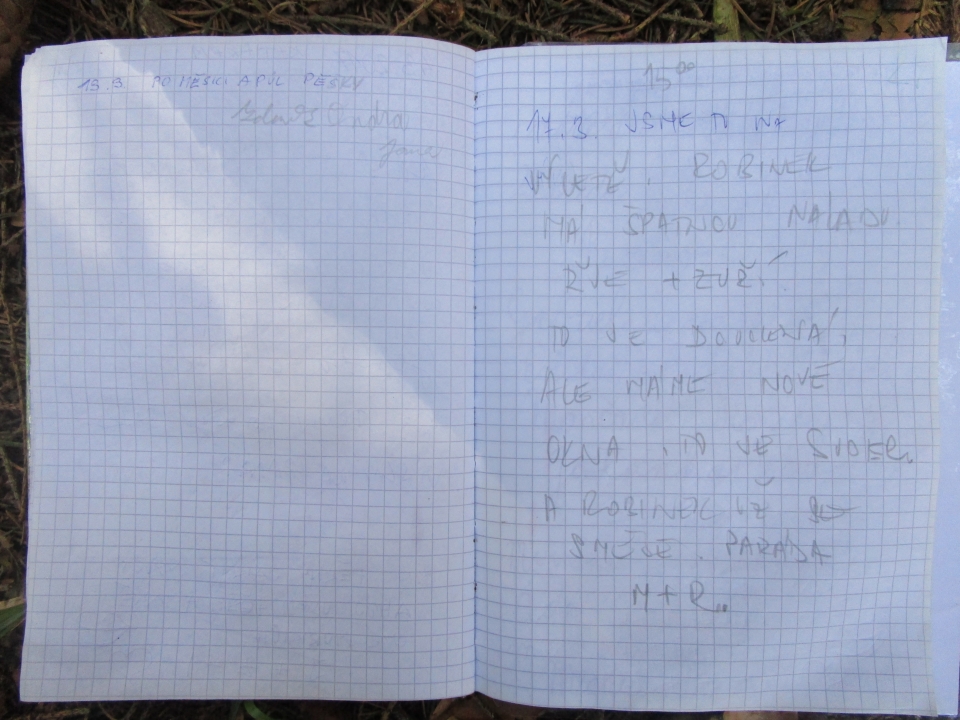 13.3. PO MĚSÍCI A PŮL PĚŠKY
Jindra
15⁰⁰
17.3. JSME TU NA
VÝLETĚ. ROBINEK
MÁ ŠPATNOU NÁLADU.
ŘVE + ZUŘÍ.
TO JE DOVOLENÁ,
ALE MÁME NOVÉ
OKNA, TO JE SUPER.
A ROBINEK UŽ SE
SMĚJE. PARÁDA
M+R.